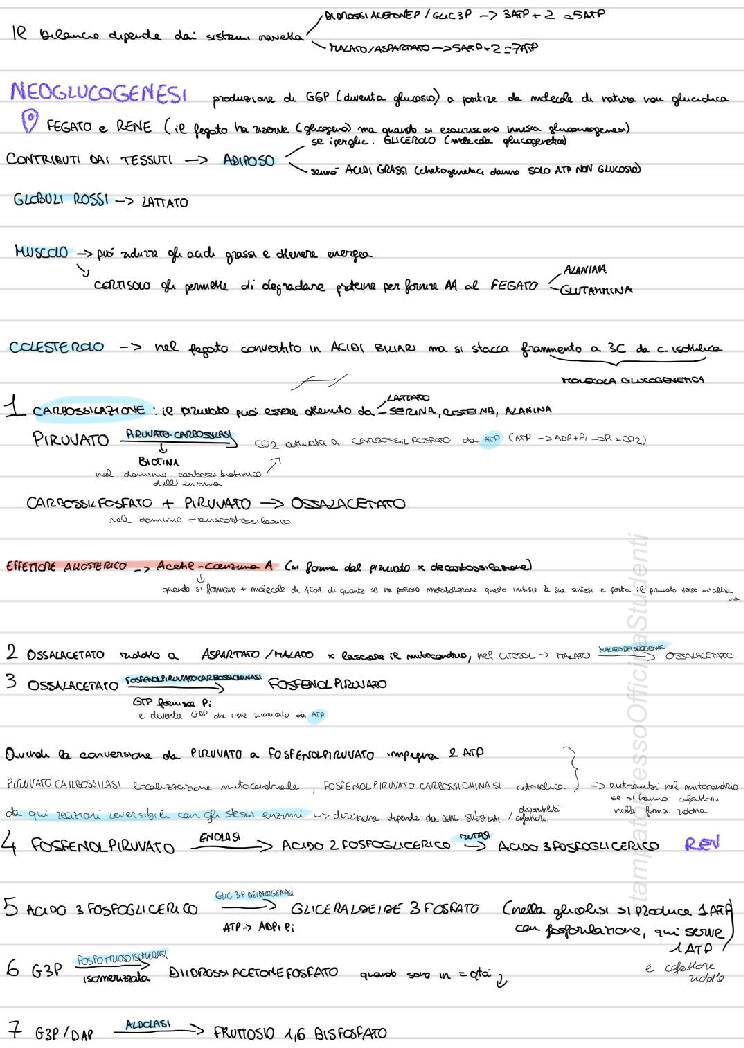 DIIDROSSIACETONEP / GLIC3P -> 3ATP + 2 = 5ATP
Il bilancio dipende dai sistemi navetta
MALATO/ASPARTATO -> 5ATP + 2 = 7ATP
NEOGLUCOGENESI produzione di G6P (diventa glucosio) a partire da molecole di natura non glucidica
FEGATO e RENE (il fegato ha riserve (glicogeno) ma quando si esauriscono innesca gluconeogenesi)
se ipoglic. GLICEROLO (molecola glucogenetica)
CONTRIBUTI DAI TESSUTI -> ADIPOSO
sennò ACIDI GRASSI (chetogenetici danno SOLO ATP NON GLUCOSIO)
GLOBULI ROSSI -> LATTATO
MUSCOLO -> può ridurre gli acidi grassi e ottenere energia
ALANINA
CORTISOLO gli permette di degradare proteine per fornire AA al FEGATO
GLUTAMMINA
COLESTEROLO -> nel fegato convertito in ACIDI BILIARI ma si stacca frammento a 3C da c.
MOLECOLA GLUCOGENETICA
LATTATO
1 CARBOSSILAZIONE : il PIRUVATO può essere ottenuto da - SERINA, CISTEINA, ALANINA
PIRUVATO PIRUVATO-CARBOSSILASI CO2 attivata a CARBOSSILFOSFATO da ATP (ATP -> ADP+Pi -> Pi + CO2)
BIOTINA
nel dominio
dell'enzima
CARBOSSILFOSFATO + PIRUVATO -> OSSALACETATO
nel dominio
EFFETTORE ALLOSTERICO -> Acetil-Coenzima A (si forma dal piruvato x decarbossilazione)
quando si formano + molecole di ACoA di quante se ne possono metabolizzare questo inibisce la sua sintesi e porta il piruvato verso
2 OSSALACETATO ridotto a ASPARTATO/MALATO x lasciare il mitocondrio, nel CITOSOL -> MALATO MALATO DEIDROGENASI OSSALACETATO
3 OSSALACETATO FOSFENOLPIRUVATOCARBOSSICHINASI FOSFENOLPIRUVATO
GTP fornisce Pi
e diventa GDP che viene in ATP
Quindi la conversione da PIRUVATO a FOSFENOLPIRUVATO impiega 2 ATP
PIRUVATO CARBOSSILASI localizzazione mitocondriale, FOSFENOLPIRUVATO CARBOSSICHINASI -> entrambi nel mitocondrio
se si hanno cofattori
nella forma ridotta
da qui reazioni reversibili con gli stessi enzimi -> direzione dipende da substrati / disponibilità cofattori
4 FOSFENOLPIRUVATO ENOLASI ACIDO 2 FOSFOGLICERICO MUTASI ACIDO 3 FOSFOGLICERICO REV
5 ACIDO 3 FOSFOGLICERICO GLIC 3P DEIDROGENASI GLICERALDEIDE 3 FOSFATO (nella glicolisi si produce 1 ATP
ATP -> ADP + Pi con fosforilazione, qui serve
1 ATP)
e cofattore
ridotto
6 G3P FOSFOTRIOSOISOMERASI DIIDROSSIACETONEFOSFATO quando sono in = qtà
isomerizzata
7 G3P/DAP ALDOLASI FRUTTOSIO 1,6 BISFOSFATO